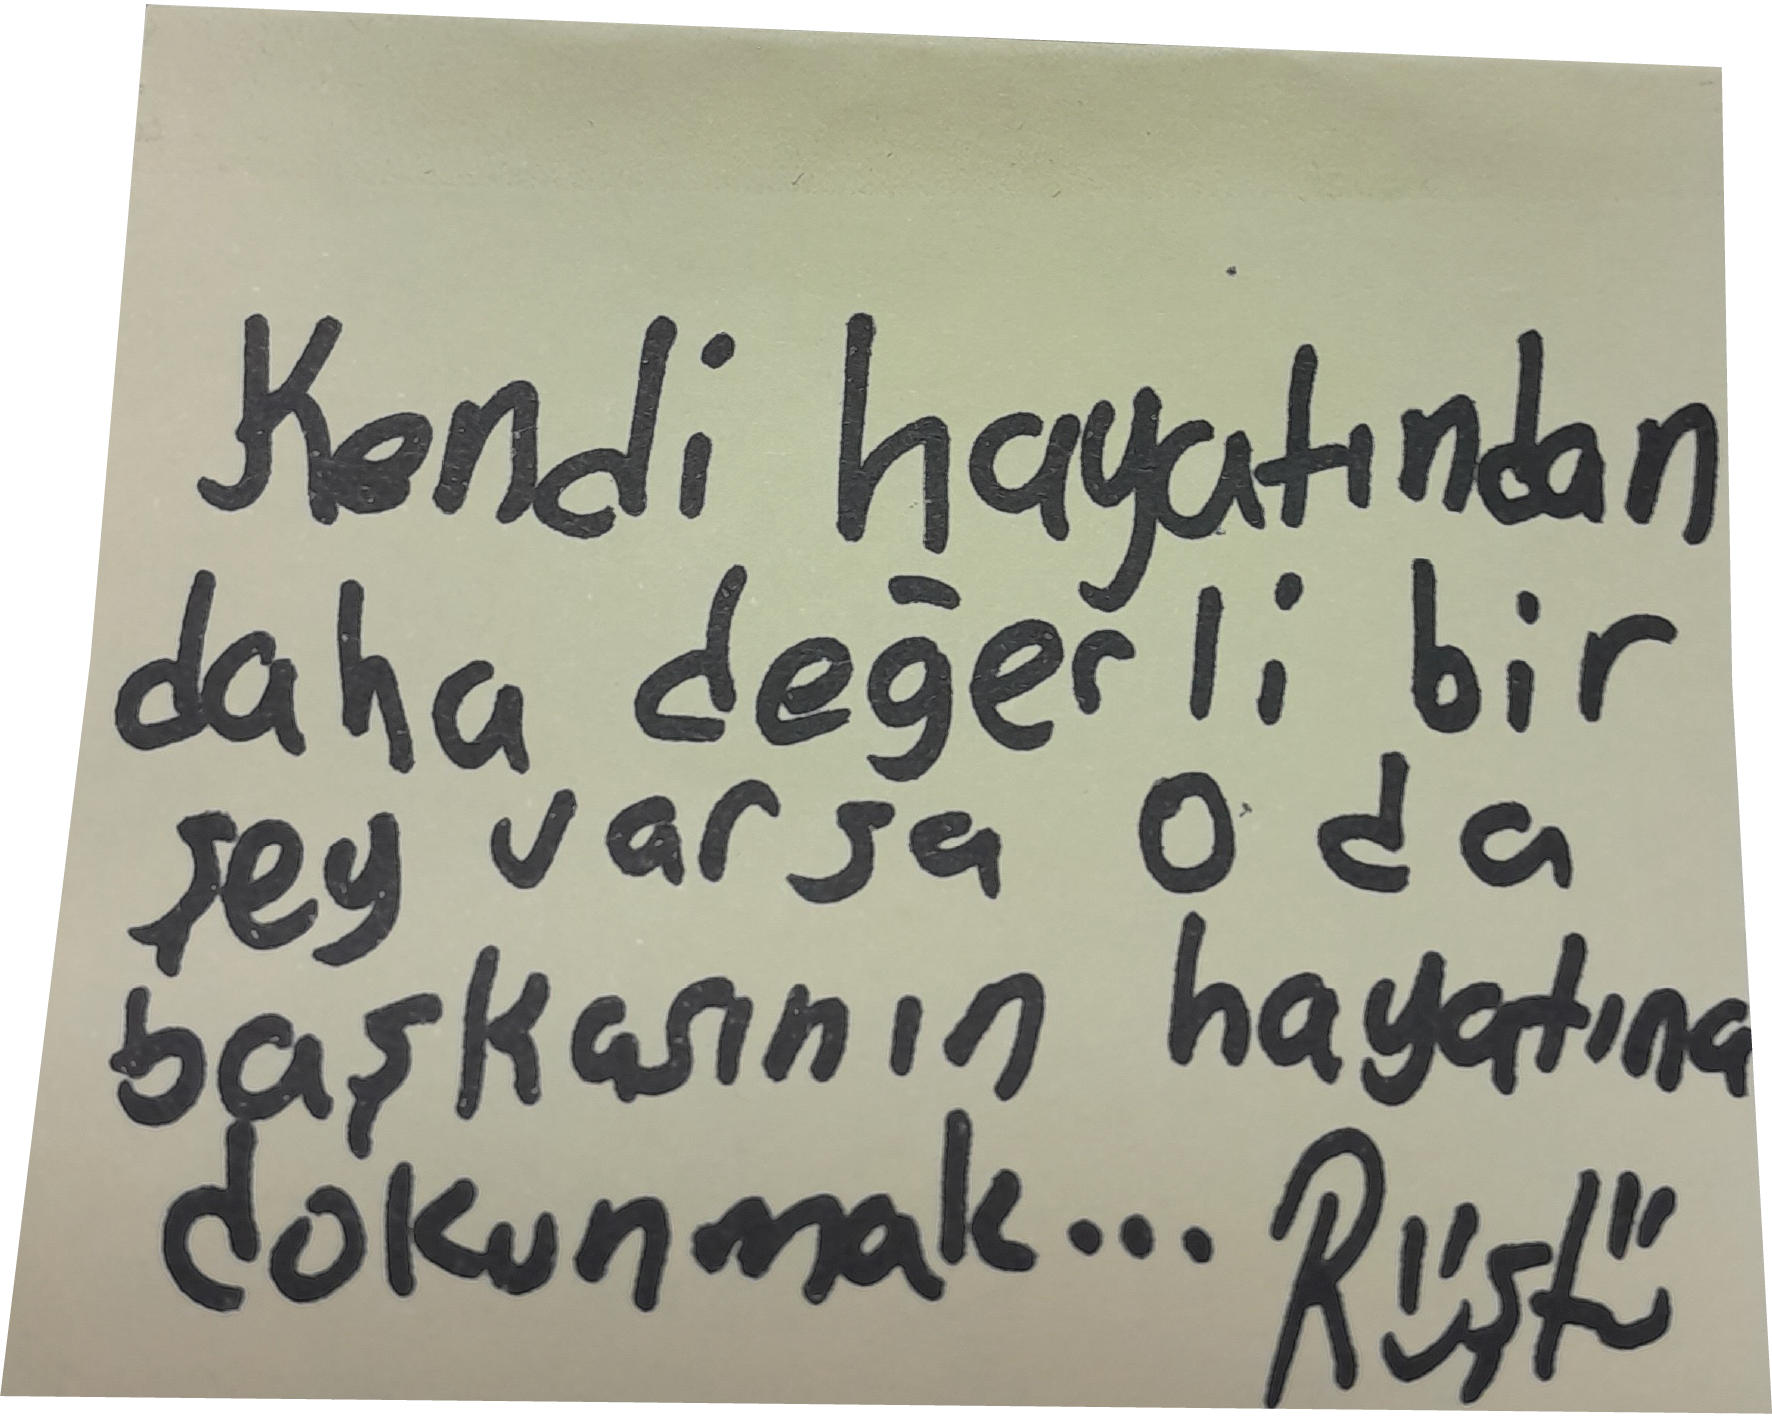 Kendi hayatından
daha değerli bir
şey varsa o da
başkasının hayatına
dokunmak... Rüştü